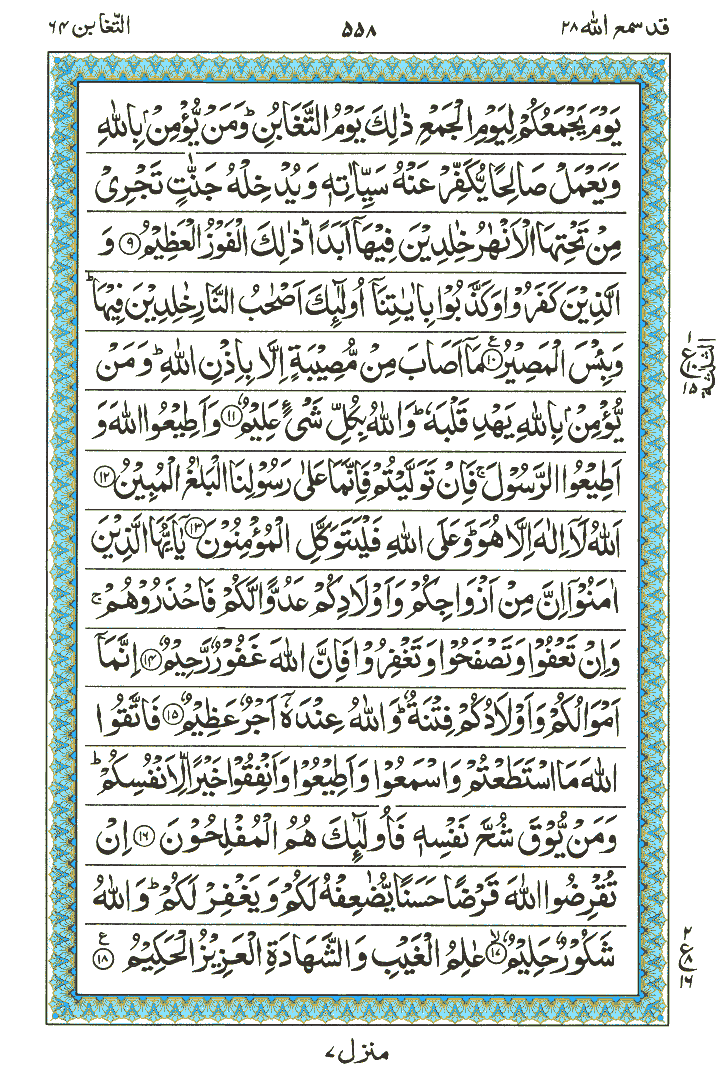 قد سمع الله ۲۸
۵۵۸
التغابن ۶۴
يَوْمَ يَجْمَعُكُمْ لِيَوْمِ الْجَمْعِ ذٰلِكَ يَوْمُ التَّغَابُنِ ؕ وَمَنْ يُّؤْمِنْۢ بِاللّٰهِ
وَيَعْمَلْ صَالِحًا يُّكَفِّرْ عَنْهُ سَيِّاٰتِهٖ وَيُدْخِلْهُ جَنّٰتٍ تَجْرِىْ
مِنْ تَحْتِهَا الْاَنْهٰرُ خٰلِدِيْنَ فِيْهَاۤ اَبَدًا ؕ ذٰلِكَ الْفَوْزُ الْعَظِيْمُ ۹ وَ
الَّذِيْنَ كَفَرُوْا وَكَذَّبُوْا بِاٰيٰتِنَاۤ اُولٰٓئِكَ اَصْحٰبُ النَّارِ خٰلِدِيْنَ فِيْهَا ؕ
وَبِئْسَ الْمَصِيْرُ ۱۰ ع مَاۤ اَصَابَ مِنْ مُّصِيْبَةٍ اِلَّا بِاِذْنِ اللّٰهِ ؕ وَمَنْ
يُّؤْمِنْۢ بِاللّٰهِ يَهْدِ قَلْبَهٗ ؕ وَاللّٰهُ بِكُلِّ شَىْءٍ عَلِيْمٌ ۱۱ وَاَطِيْعُوا اللّٰهَ وَ
اَطِيْعُوا الرَّسُوْلَ ۚ فَاِنْ تَوَلَّيْتُمْ فَاِنَّمَا عَلٰى رَسُوْلِنَا الْبَلٰغُ الْمُبِيْنُ ۱۲
اَللّٰهُ لَاۤ اِلٰهَ اِلَّا هُوَ ؕ وَعَلَى اللّٰهِ فَلْيَتَوَكَّلِ الْمُؤْمِنُوْنَ ۱۳ يٰۤاَيُّهَا الَّذِيْنَ
اٰمَنُوْۤا اِنَّ مِنْ اَزْوَاجِكُمْ وَاَوْلَادِكُمْ عَدُوًّا لَّكُمْ فَاحْذَرُوْهُمْ ۚ
وَاِنْ تَعْفُوْا وَتَصْفَحُوْا وَتَغْفِرُوْا فَاِنَّ اللّٰهَ غَفُوْرٌ رَّحِيْمٌ ۱۴ اِنَّمَاۤ
اَمْوَالُكُمْ وَاَوْلَادُكُمْ فِتْنَةٌ ؕ وَاللّٰهُ عِنْدَهٗۤ اَجْرٌ عَظِيْمٌ ۱۵ فَاتَّقُوا
اللّٰهَ مَا اسْتَطَعْتُمْ وَاسْمَعُوْا وَاَطِيْعُوْا وَاَنْفِقُوْا خَيْرًا لِّاَنْفُسِكُمْ ؕ
وَمَنْ يُّوْقَ شُحَّ نَفْسِهٖ فَاُولٰٓئِكَ هُمُ الْمُفْلِحُوْنَ ۱۶ اِنْ
تُقْرِضُوا اللّٰهَ قَرْضًا حَسَنًا يُّضٰعِفْهُ لَكُمْ وَيَغْفِرْ لَكُمْ ؕ وَاللّٰهُ
شَكُوْرٌ حَلِيْمٌ ۱۷ ۙ عٰلِمُ الْغَيْبِ وَالشَّهَادَةِ الْعَزِيْزُ الْحَكِيْمُ ۱۸ ع
۱
ع
۱۵
الثلثة
۲
ع
۸
۱۶
منزل ۷